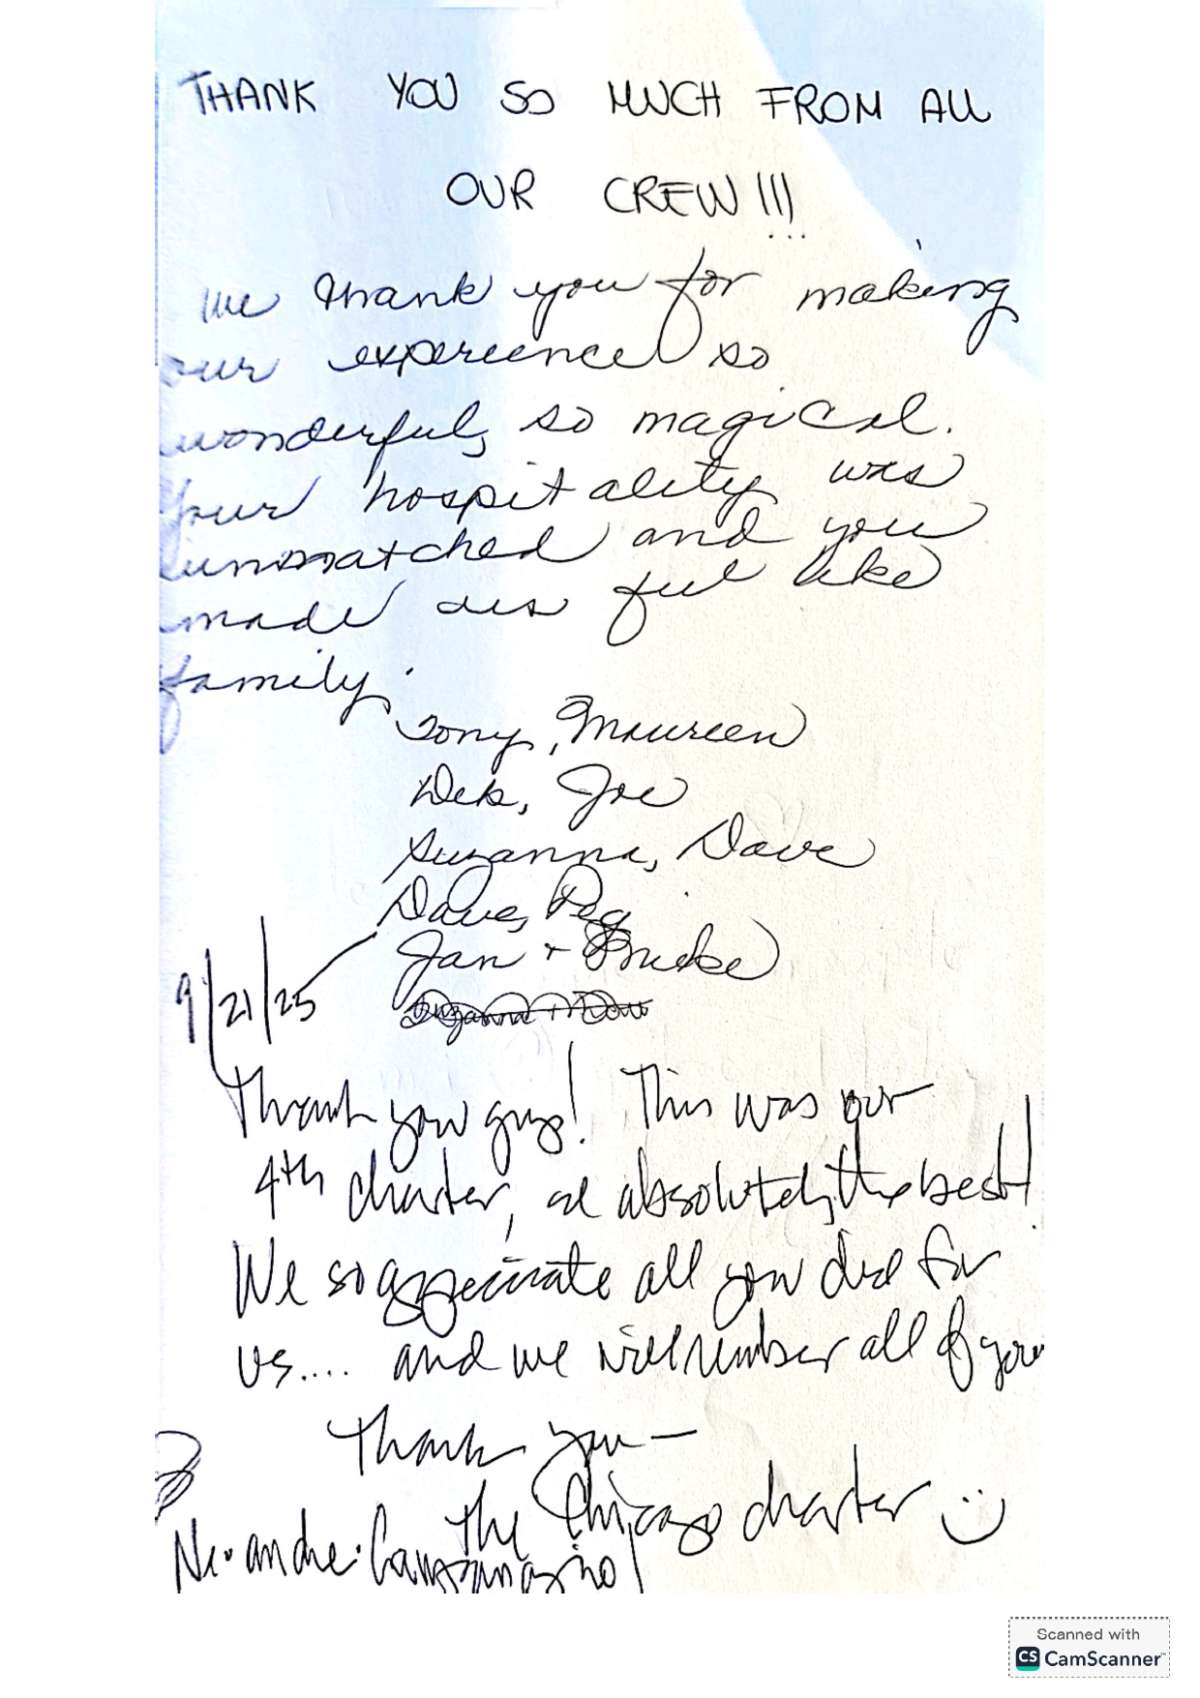 THANK YOU SO MUCH FROM ALL
OUR CREW!!!
We thank you for making
our experience so
wonderful, so magical.
Your hospitality was
unmatched and you
made us feel like
family.
Tony, Maureen
Deb, Joe
Suzanna, Dave
Dave, Peg
Jan +
9/21/25
Suzanna + Dave
Thank you guys! This was our
4th charter, absolutely the best!
We so appreciate all you did for
us.... and we will remember all of you
Thank you—
The Chicago charter